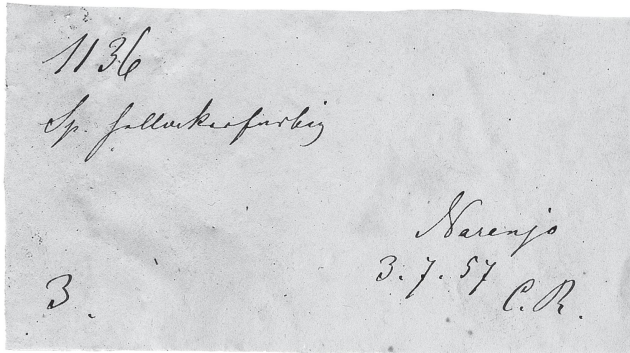 1136
Sp. hellockerfarbig
Narenjo
3. 7. 57
C. R.
3.